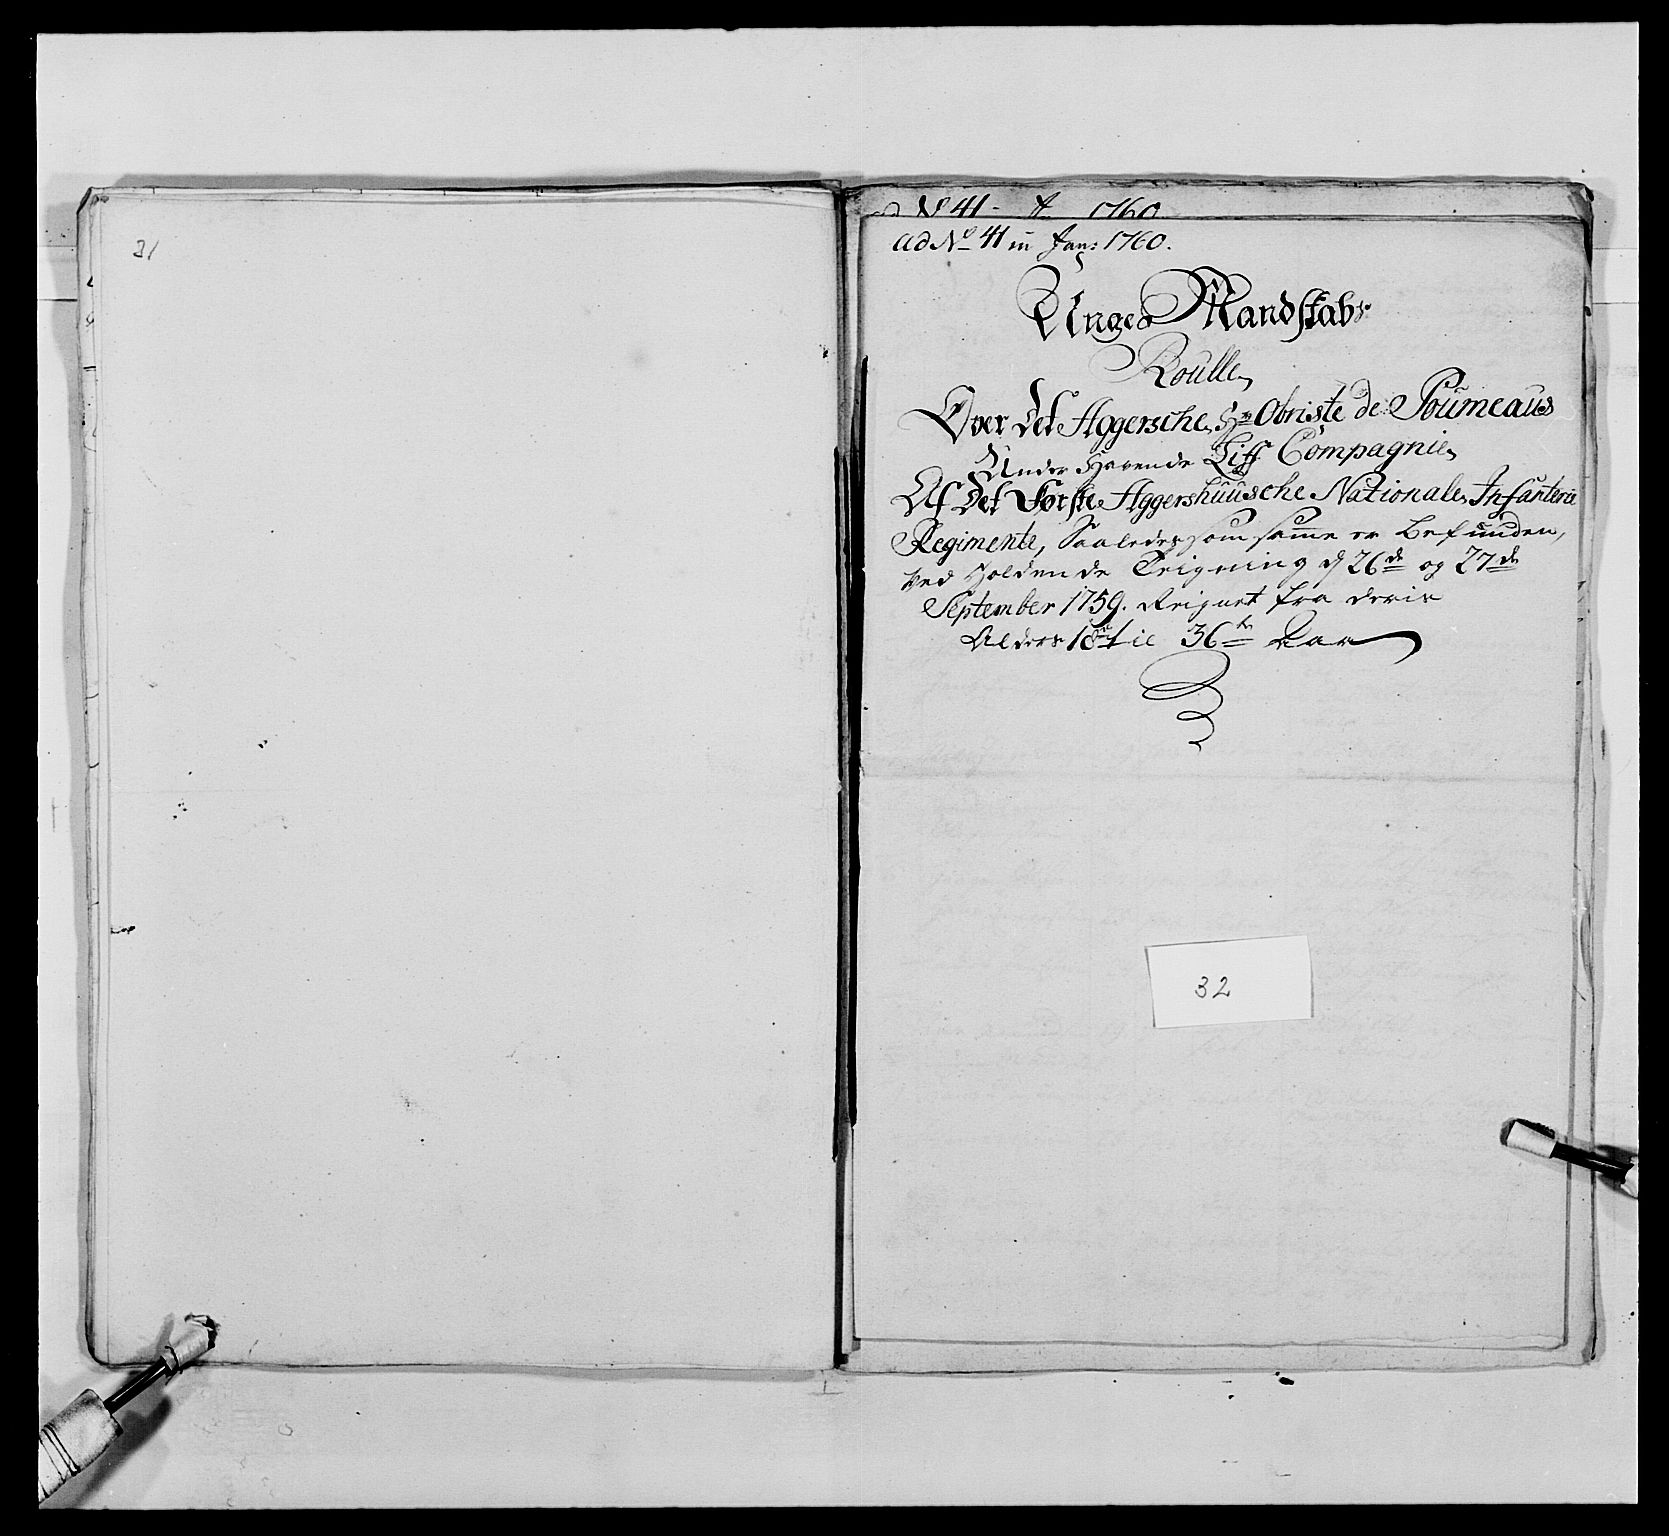 31
No 41 - J 1760
ad No 41 in Jan: 1760.
Unge Mandskabs
Roulle
Over Det Aggersche Hr Obriste de Poumeaus
Under Havende Liff Compagnie
Af Det Første Aggershuusche Nationale Infanterie
Regimente, Saaledes som samme er befunden,
ved Holdende Teigning d 26de og 27de
September 1759. Reignet fra deris
Alders 18de til 36te Aar
32